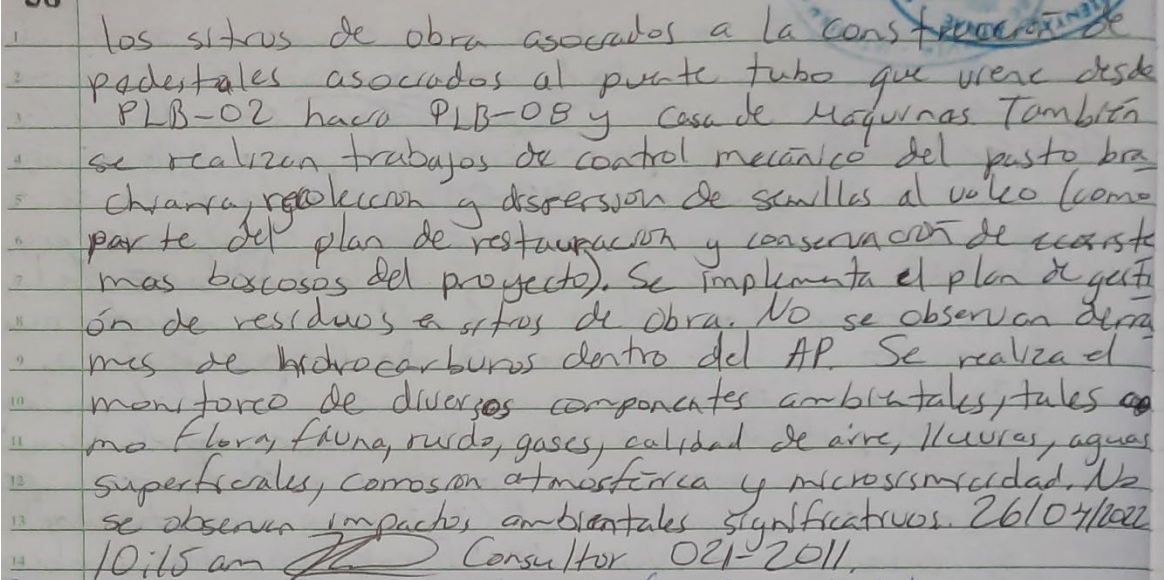 los sitios de obra asociados a la construcción de
pedestales asociados al puente tubo que viene desde
PLB-02 hacia PLB-08 y Casa de Máquinas. También
se realizan trabajos de control mecánico del pasto bra
chiaria, recolección y dispersión de semillas al voleo (como
parte del plan de restauración y conservación de ecosiste
mas boscosos del proyecto). Se implementa el plan de gesti
ón de residuos en sitios de obra. No se observan derra
mes de hidrocarburos dentro del AP. Se realiza el
monitoreo de diversos componentes ambientales, tales co
mo flora, fauna, ruido, gases, calidad de aire, lluvias, aguas
superficiales, corrosión atmosférica y microsismicidad. No
se observan impactos ambientales significativos. 26/04/2022
10:15 am Consultor 021-2011.